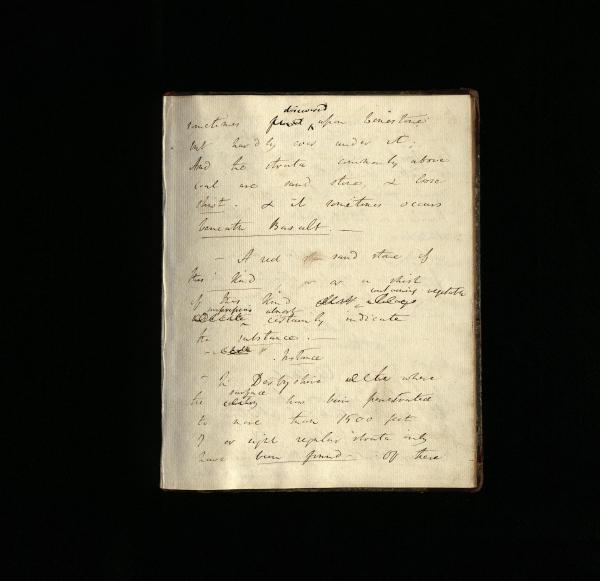 discovered
sometimes found upon limestone;
but hardly ever under it;
And the strata commonly above
coal are sand stone, & loose
shist. & it sometimes occurs
beneath Basalt. —
— A red sand stone of
this kind or a shist
containing vegetable
of this kind always
impressions almost
certainly indicate
the substance. —
Instance
— In Derbyshire where
surface
the has been penetrated
to more than 1500 feet
7 or eight regular strata only
have been found — Of these